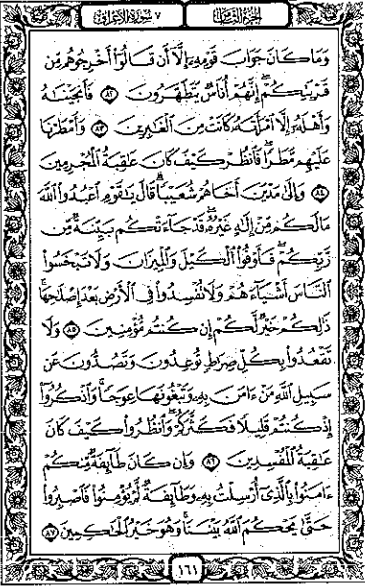 الجزء الثامن
٧ سورة الأعراف
وَمَا كَانَ جَوَابَ قَوْمِهِۦٓ إِلَّآ أَن قَالُوٓا۟ أَخْرِجُوهُم مِّن
قَرْيَتِكُمْ ۖ إِنَّهُمْ أُنَاسٌ يَتَطَهَّرُونَ ٨٢ فَأَنجَيْنَٰهُ
وَأَهْلَهُۥٓ إِلَّا ٱمْرَأَتَهُۥ كَانَتْ مِنَ ٱلْغَٰبِرِينَ ٨٣ وَأَمْطَرْنَا
عَلَيْهِم مَّطَرًا ۖ فَٱنظُرْ كَيْفَ كَانَ عَٰقِبَةُ ٱلْمُجْرِمِينَ
٨٤ وَإِلَىٰ مَدْيَنَ أَخَاهُمْ شُعَيْبًا ۗ قَالَ يَٰقَوْمِ ٱعْبُدُوا۟ ٱللَّهَ
مَا لَكُم مِّنْ إِلَٰهٍ غَيْرُهُۥ ۖ قَدْ جَآءَتْكُم بَيِّنَةٌ مِّن
رَّبِّكُمْ ۖ فَأَوْفُوا۟ ٱلْكَيْلَ وَٱلْمِيزَانَ وَلَا تَبْخَسُوا۟
ٱلنَّاسَ أَشْيَآءَهُمْ وَلَا تُفْسِدُوا۟ فِى ٱلْأَرْضِ بَعْدَ إِصْلَٰحِهَا ۚ
ذَٰلِكُمْ خَيْرٌ لَّكُمْ إِن كُنتُم مُّؤْمِنِينَ ٨٥ وَلَا
تَقْعُدُوا۟ بِكُلِّ صِرَٰطٍ تُوعِدُونَ وَتَصُدُّونَ عَن
سَبِيلِ ٱللَّهِ مَنْ ءَامَنَ بِهِۦ وَتَبْغُونَهَا عِوَجًا ۚ وَٱذْكُرُوٓا۟
إِذْ كُنتُمْ قَلِيلًا فَكَثَّرَكُمْ ۖ وَٱنظُرُوا۟ كَيْفَ كَانَ
عَٰقِبَةُ ٱلْمُفْسِدِينَ ٨٦ وَإِن كَانَ طَآئِفَةٌ مِّنكُمْ
ءَامَنُوا۟ بِٱلَّذِىٓ أُرْسِلْتُ بِهِۦ وَطَآئِفَةٌ لَّمْ يُؤْمِنُوا۟ فَٱصْبِرُوا۟
حَتَّىٰ يَحْكُمَ ٱللَّهُ بَيْنَنَا ۚ وَهُوَ خَيْرُ ٱلْحَٰكِمِينَ ٨٧
١٦١